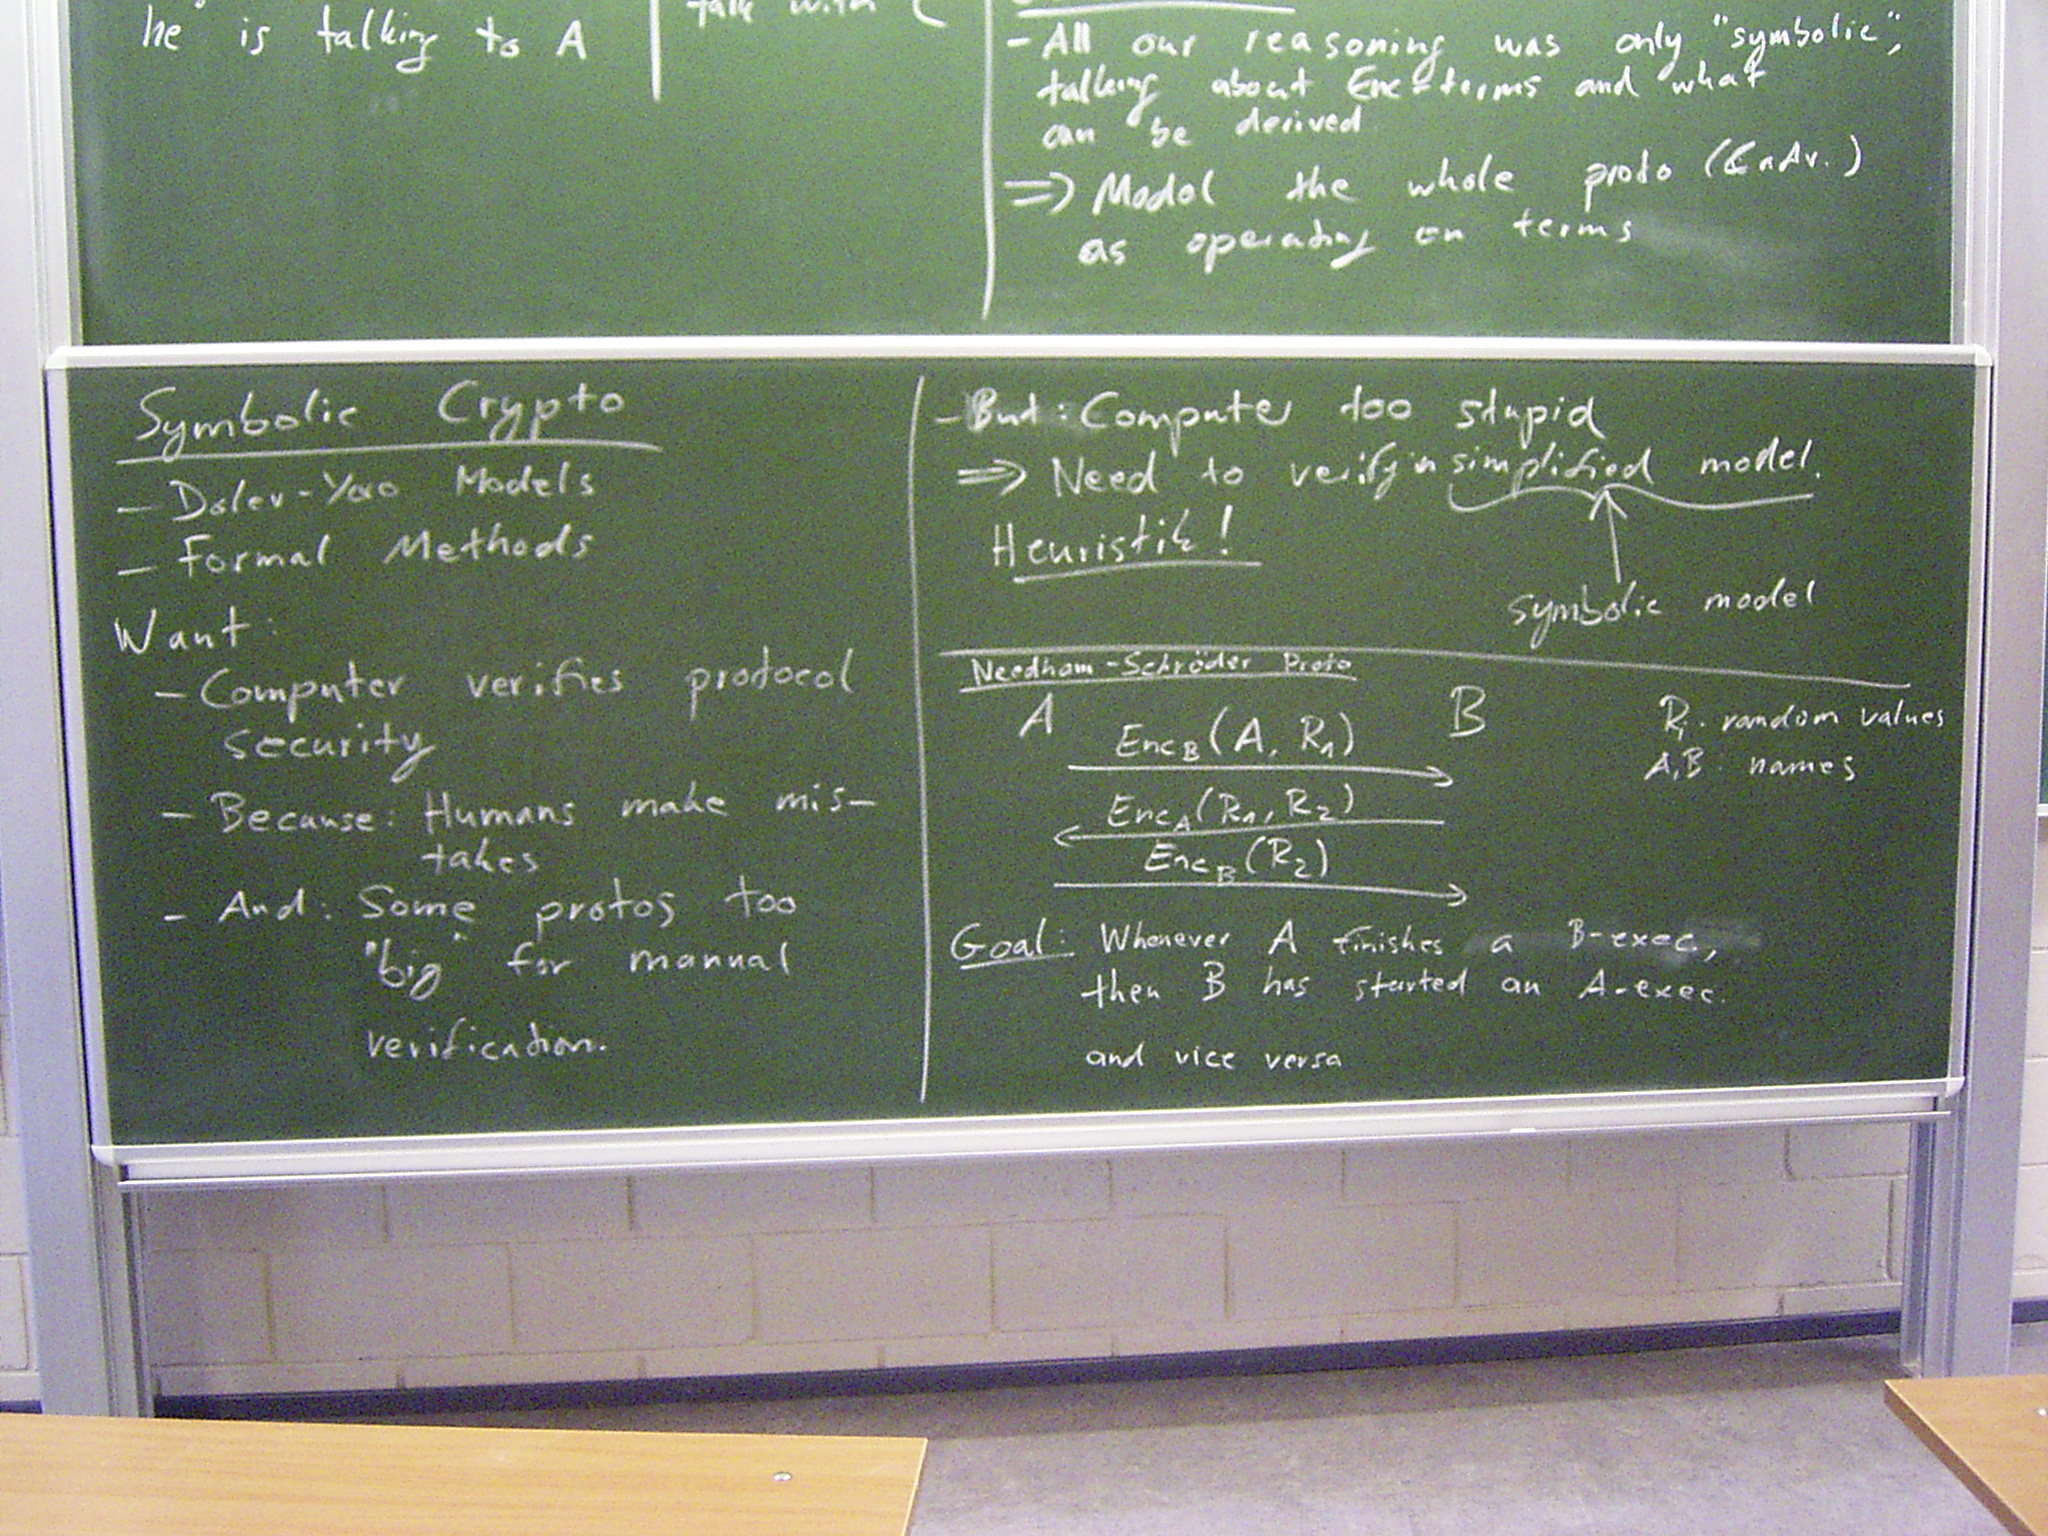 he is talking to A
talk with C
- All our reasoning was only "symbolic",
talking about Enc-terms and what
can be derived
=> Model the whole proto (& Adv.)
as operating on terms
Symbolic Crypto
- Dolev-Yao Models
- Formal Methods
Want:
- Computer verifies protocol
security
- Because: Humans make mis-
takes
- And: Some protos too
"big" for manual
verification.
- But: Computer too stupid
=> Need to verify in simplified model.
Heuristik!
symbolic model
Needham-Schröder Proto
A B
R_i: random values
A,B: names
Enc_B(A, R_1)
Enc_A(R_1, R_2)
Enc_B(R_2)
Goal: Whenever A finishes a B-exec.,
then B has started an A-exec.
and vice versa